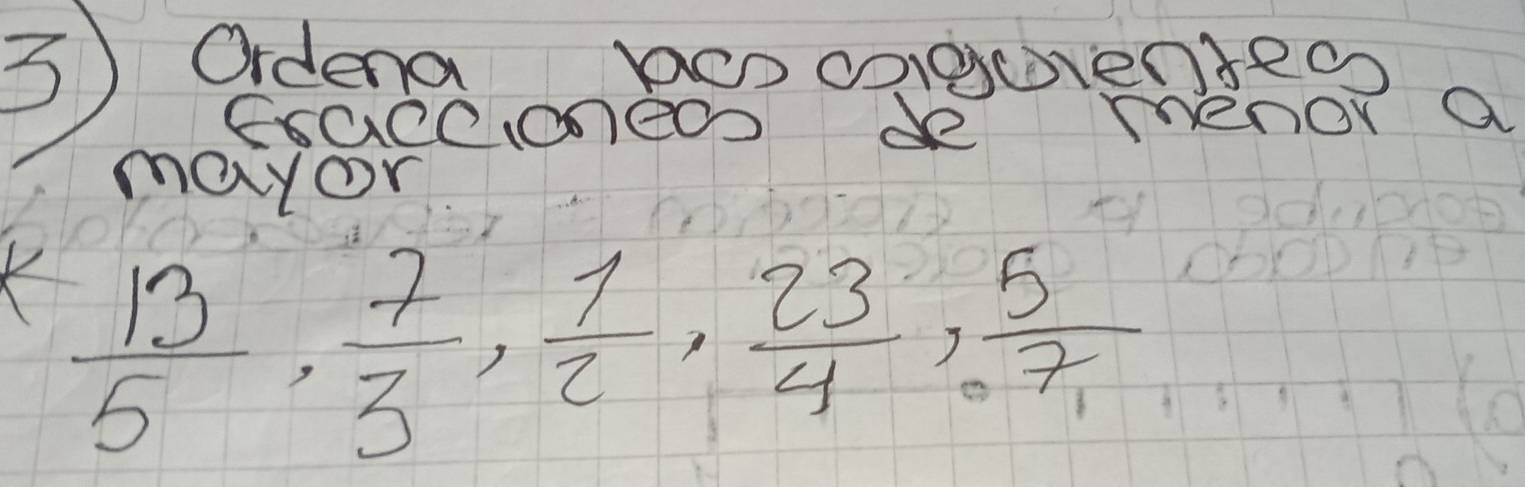 3) Ordena las siguientes
fracciones de menor a
mayor
13/5, 7/3, 1/2, 23/4, 5/7